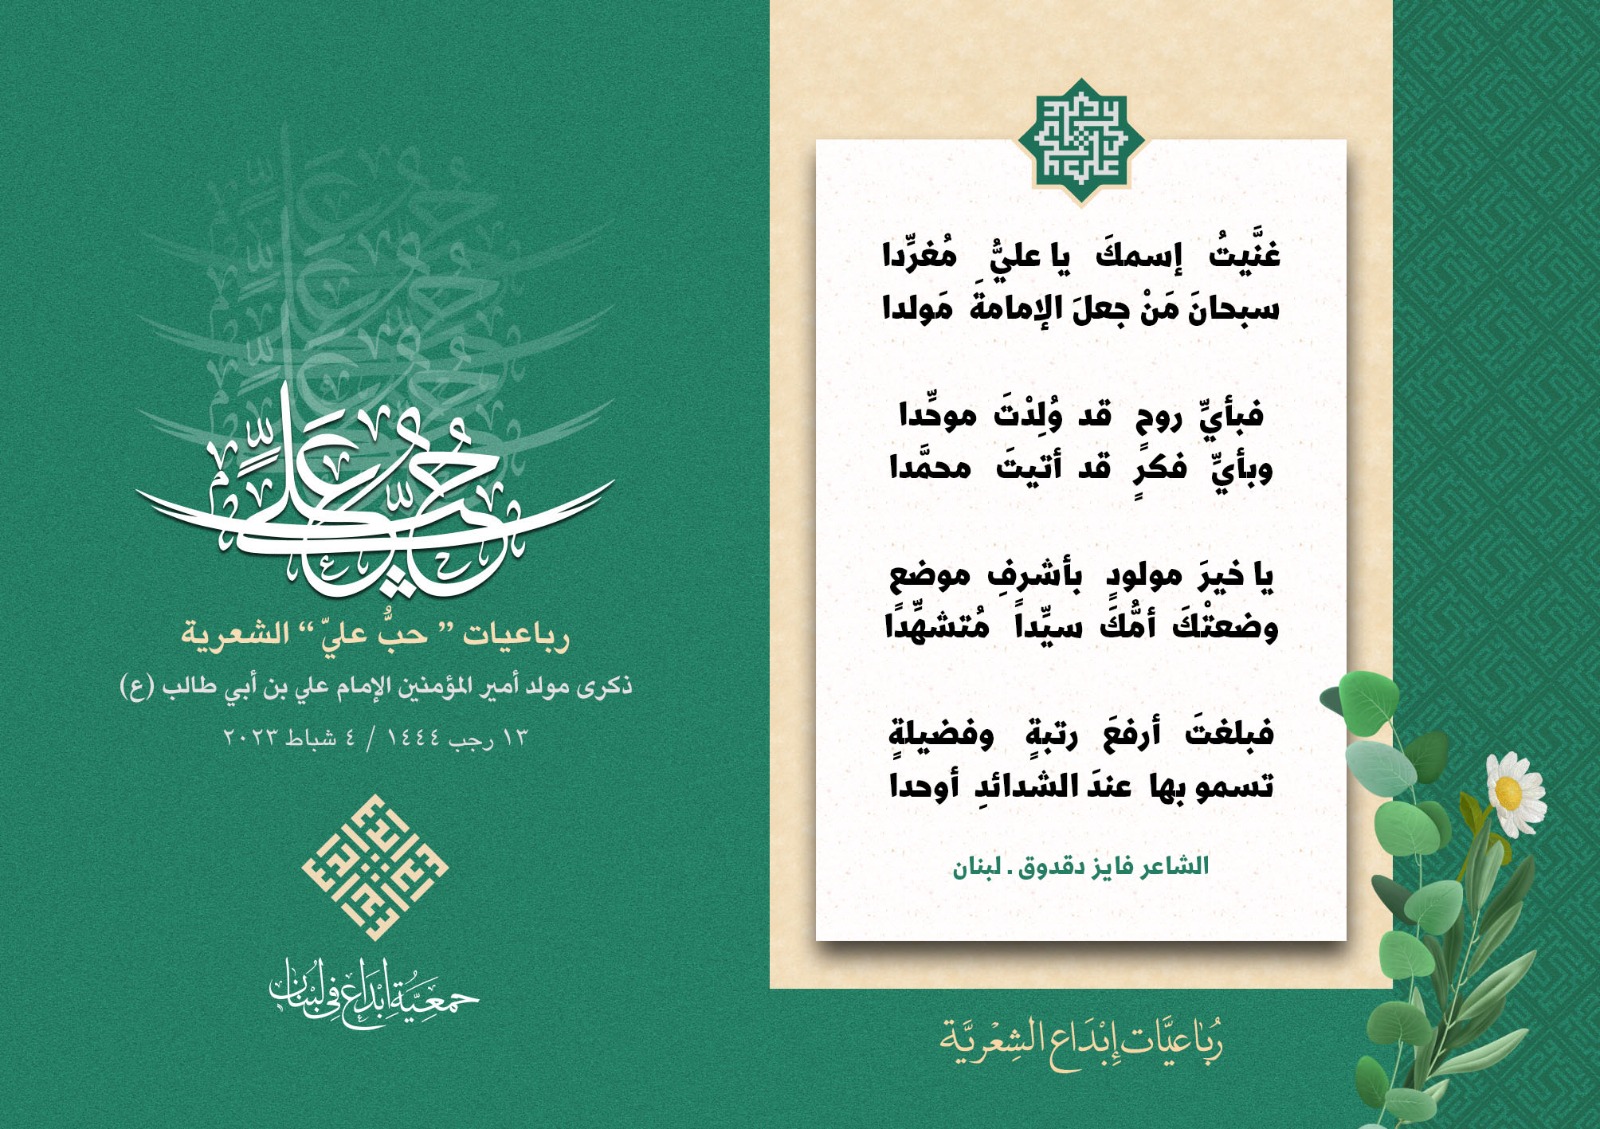 غنَّيتُ إسمكَ يا عليُّ مُغرِّدا
سبحانَ مَنْ جعلَ الإمامةَ مَولدا
فبأيِّ روحٍ قد وُلِدْتَ موحِّدا
وبأيِّ فكرٍ قد أتيتَ محمَّدا
يا خيرَ مولودٍ بأشرفِ موضعٍ
وضعتْكَ أمُّكَ سيِّداً مُتشهِّدا
فبلغتَ أرفعَ رتبةٍ وفضيلةٍ
تسمو بها عندَ الشدائدِ أوحدا
الشاعر فايز دقدوق . لبنان
رُباعيَّات إبْدَاع الشِعْريَّة
حُبُّ عَلِيٍّ
رباعيات ” حبُّ عليّ “ الشعرية
ذكرى مولد أمير المؤمنين الإمام علي بن أبي طالب (ع)
١٣ رجب ١٤٤٤ / ٤ شباط ٢٠٢٣
جمعيَّة إبْدَاع في لبْنَان